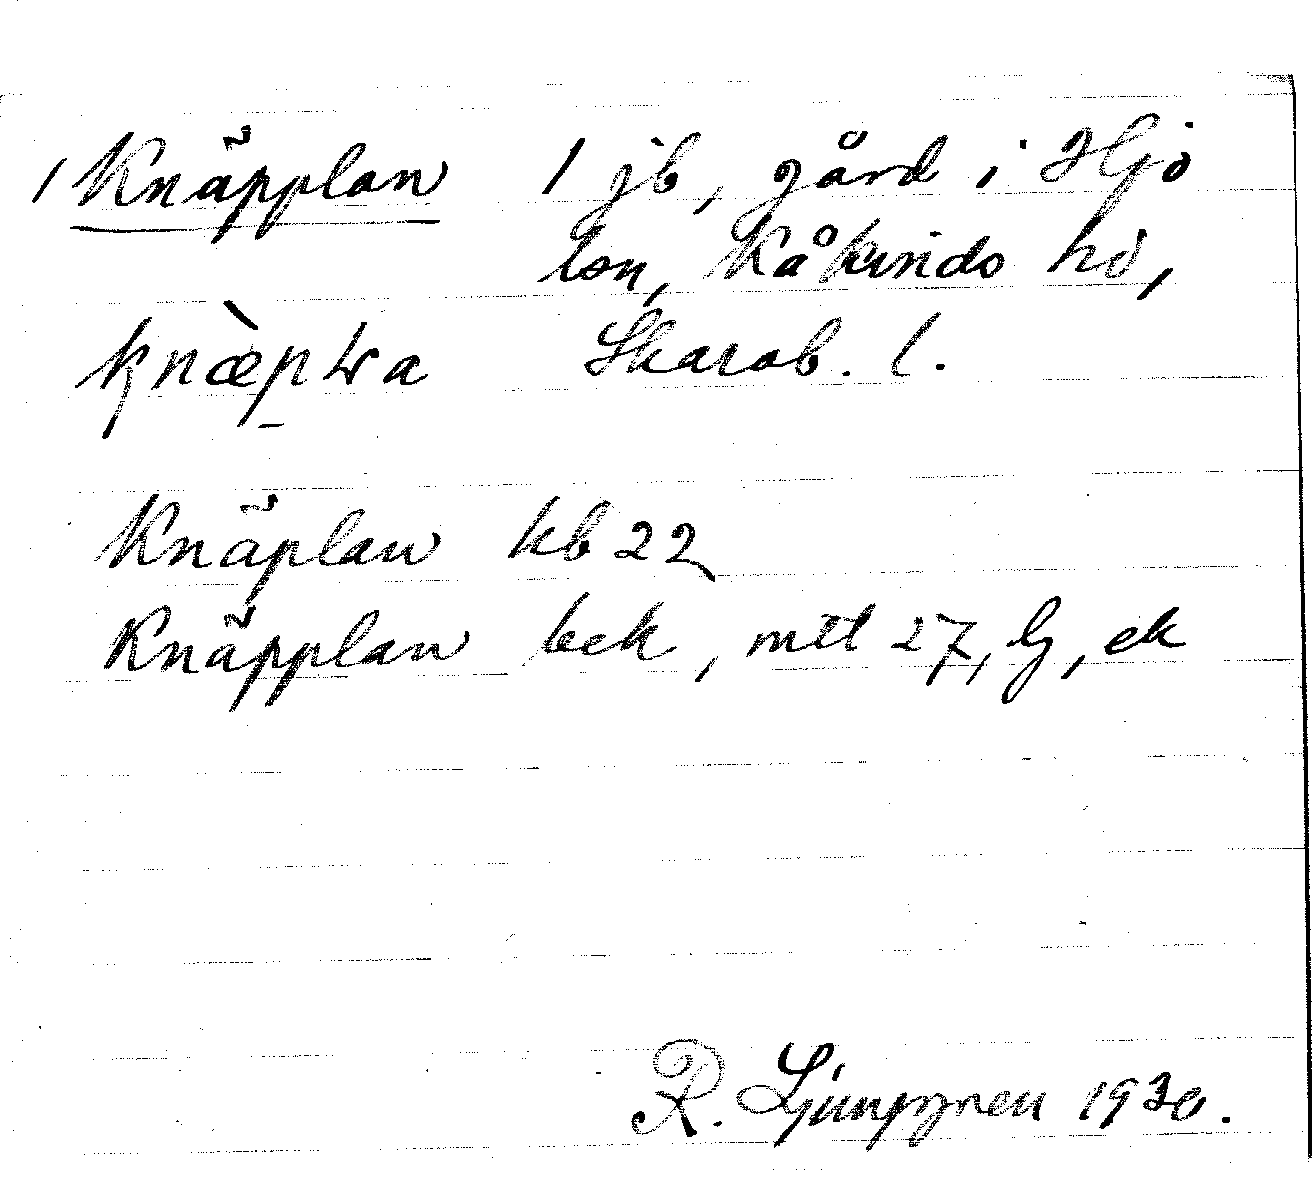 1 Knäpplan 1 jb, gård i Hjo
lsn, Kåkinds hd,
Skarab. l.
Knäplan kb 22
Knäpplan bek, mtl 27, lj, ek
R. Ljunggren 1930.